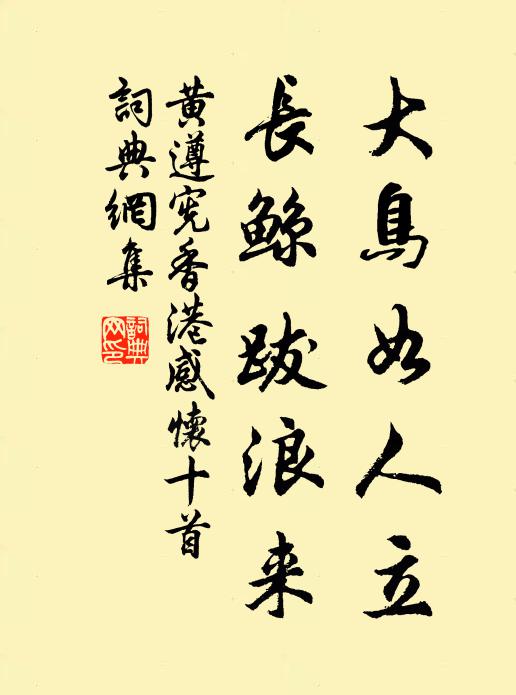 大鳥如人立
長鯨跋浪来
黃遵宪香港感懷十首
詞典網集
詞典网印